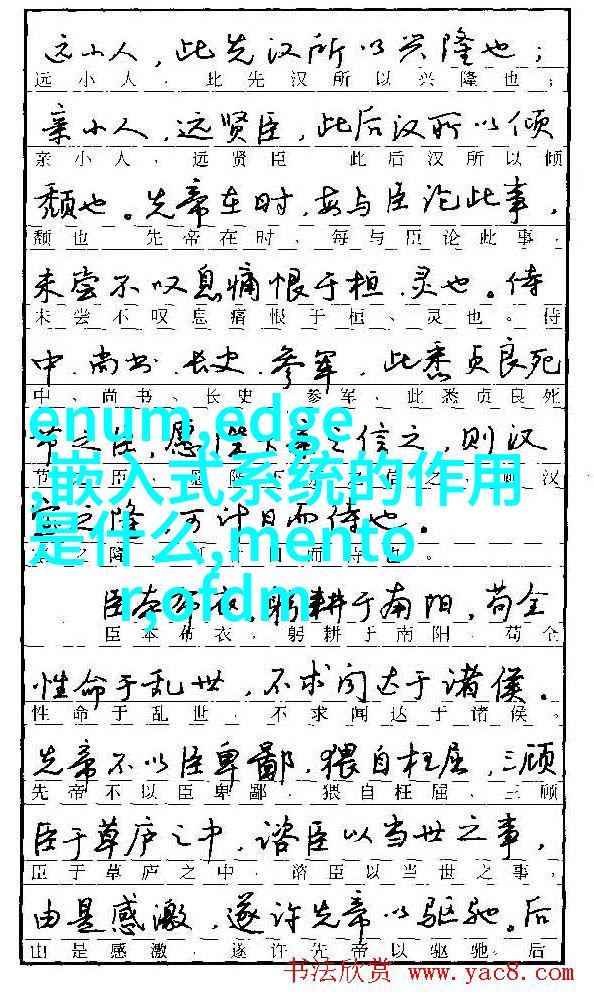 远小人，此先汉所以兴隆也；
远小人，此先汉所以兴隆也；
亲小人，远贤臣，此后汉所以倾
亲小人，远贤臣 此后汉所以倾
颓也。先帝在时，每与臣论此事，
颓也 先帝在时，每与臣论此事，
未尝不叹息痛恨于桓、灵也。侍
未尝不叹息痛恨于桓、灵也。侍
中、尚书、长史、参军，此悉贞良死
中、尚书、长史 参军，此悉贞良死
节之臣，愿陛下亲之信之，则汉
enum,edge
,嵌入式系统的作用
室之隆，可计日而待也。
是什么,mento
r,ofdm
臣本布衣，躬耕于南阳，苟全
臣本布衣，躬耕于南阳，苟全
性命于乱世，不求闻达于诸侯。
性命于乱世，不求闻达于诸侯。
先帝不以臣卑鄙，猥自枉屈，三顾
先帝不以臣卑鄙，猥自枉屈、三顾
臣于草庐之中，谘臣以当世之事，
臣于草庐之中，谘臣以当世之事，
由是感激，遂许先帝以驱驰。后
由是感激，遂许先帝以驱驰。后
书法欣赏 www.yac8.com